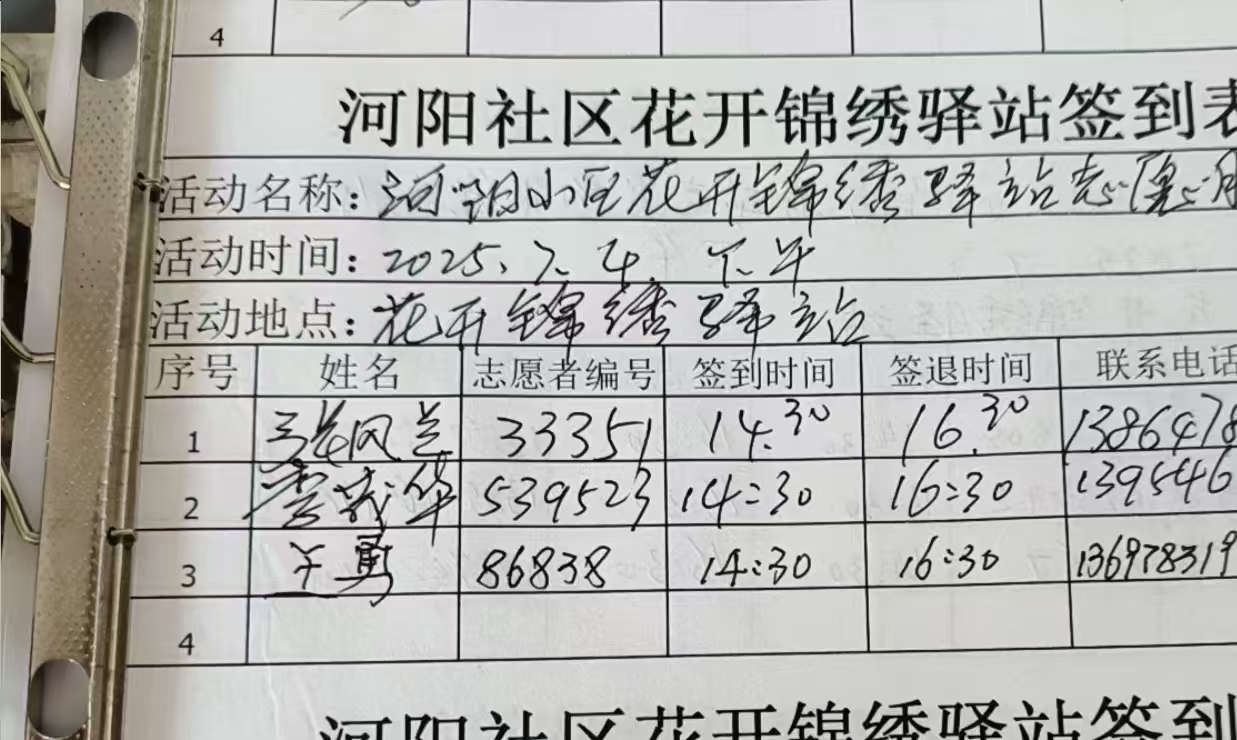 4
河阳社区花开锦绣驿站签到表
活动名称: 河阳小区花开锦绣驿站志愿服
活动时间: 2025. 7. 4. 下午
活动地点: 花开锦绣驿站
序号 姓名 志愿者编号 签到时间 签退时间 联系电话
1 张风兰 33351 14.30 16.30 1386478
2 14:30 16:30 539523 139546
3 王勇 86838 14:30 16:30 136978319
4
河阳社区花开锦绣驿站签到